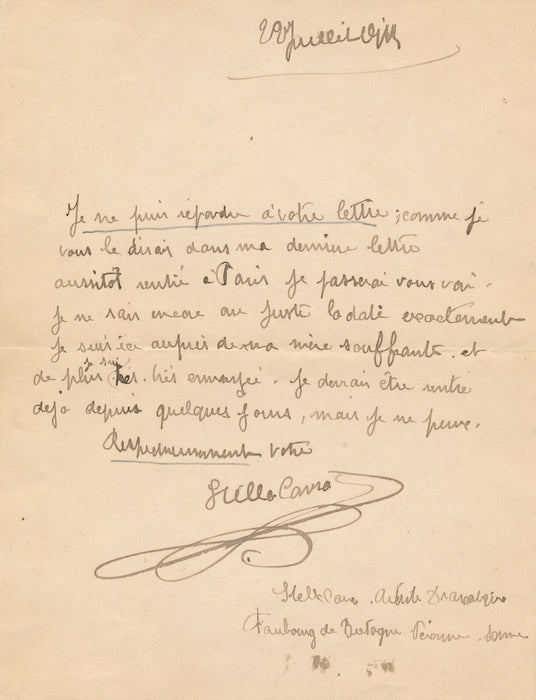 22 Juillet
Je ne puis répondre à votre lettre ; comme je
vous le disais dans ma dernière lettre
aussitôt rentré à Paris je passerai vous voir.
Je ne sais encore au juste la date exactement
Je suis ici auprès de ma mère souffrante. et
de plus je suis très ennuyée. Je devrais être rentré
déjà depuis quelques jours, mais je ne peux.
Respectueusement votre
Stella
Stella Artiste Dramatique
Faubourg de Bretagne Péronne. Somme